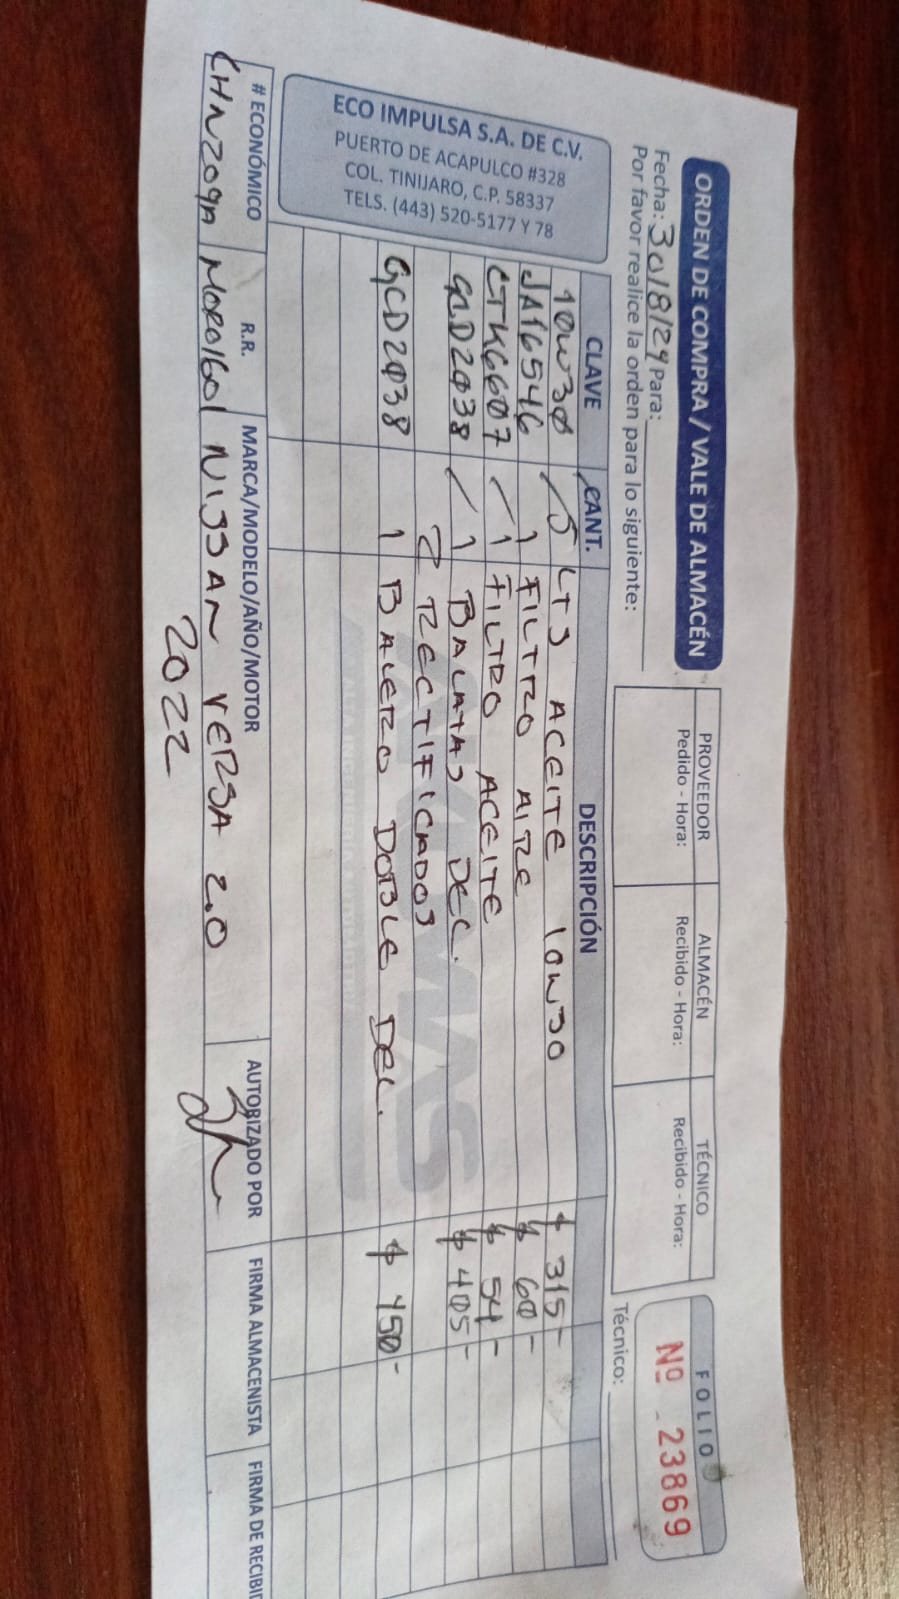 ORDEN DE COMPRA / VALE DE ALMACÉN
Fecha: 30/8/24 Para:
Por favor realice la orden para lo siguiente:
PROVEEDOR
Pedido - Hora:
ALMACÉN
Recibido - Hora:
TÉCNICO
Recibido - Hora:
FOLIO
Nº 23869
Técnico:
ECO IMPULSA S.A. DE C.V.
PUERTO DE ACAPULCO #328
COL. TINIJARO, C.P. 58337
TELS. (443) 520-5177 Y 78
CLAVE CANT. DESCRIPCIÓN
10W30 5 LTS ACEITE 10W30 $ 315-
JA16546 1 FILTRO AIRE $ 60-
CTK6607 1 FILTRO ACEITE $ 54-
GCD2038 1 BALATAS DEL. $ 405-
2 RECTIFICADOS
GCD2038 1 BALERO DOBLE DEL. $ 450-
# ECONÓMICO R.R. MARCA/MODELO/AÑO/MOTOR AUTORIZADO POR FIRMA ALMACENISTA FIRMA DE RECIBI
NISSAN VERSA 2.0
2022